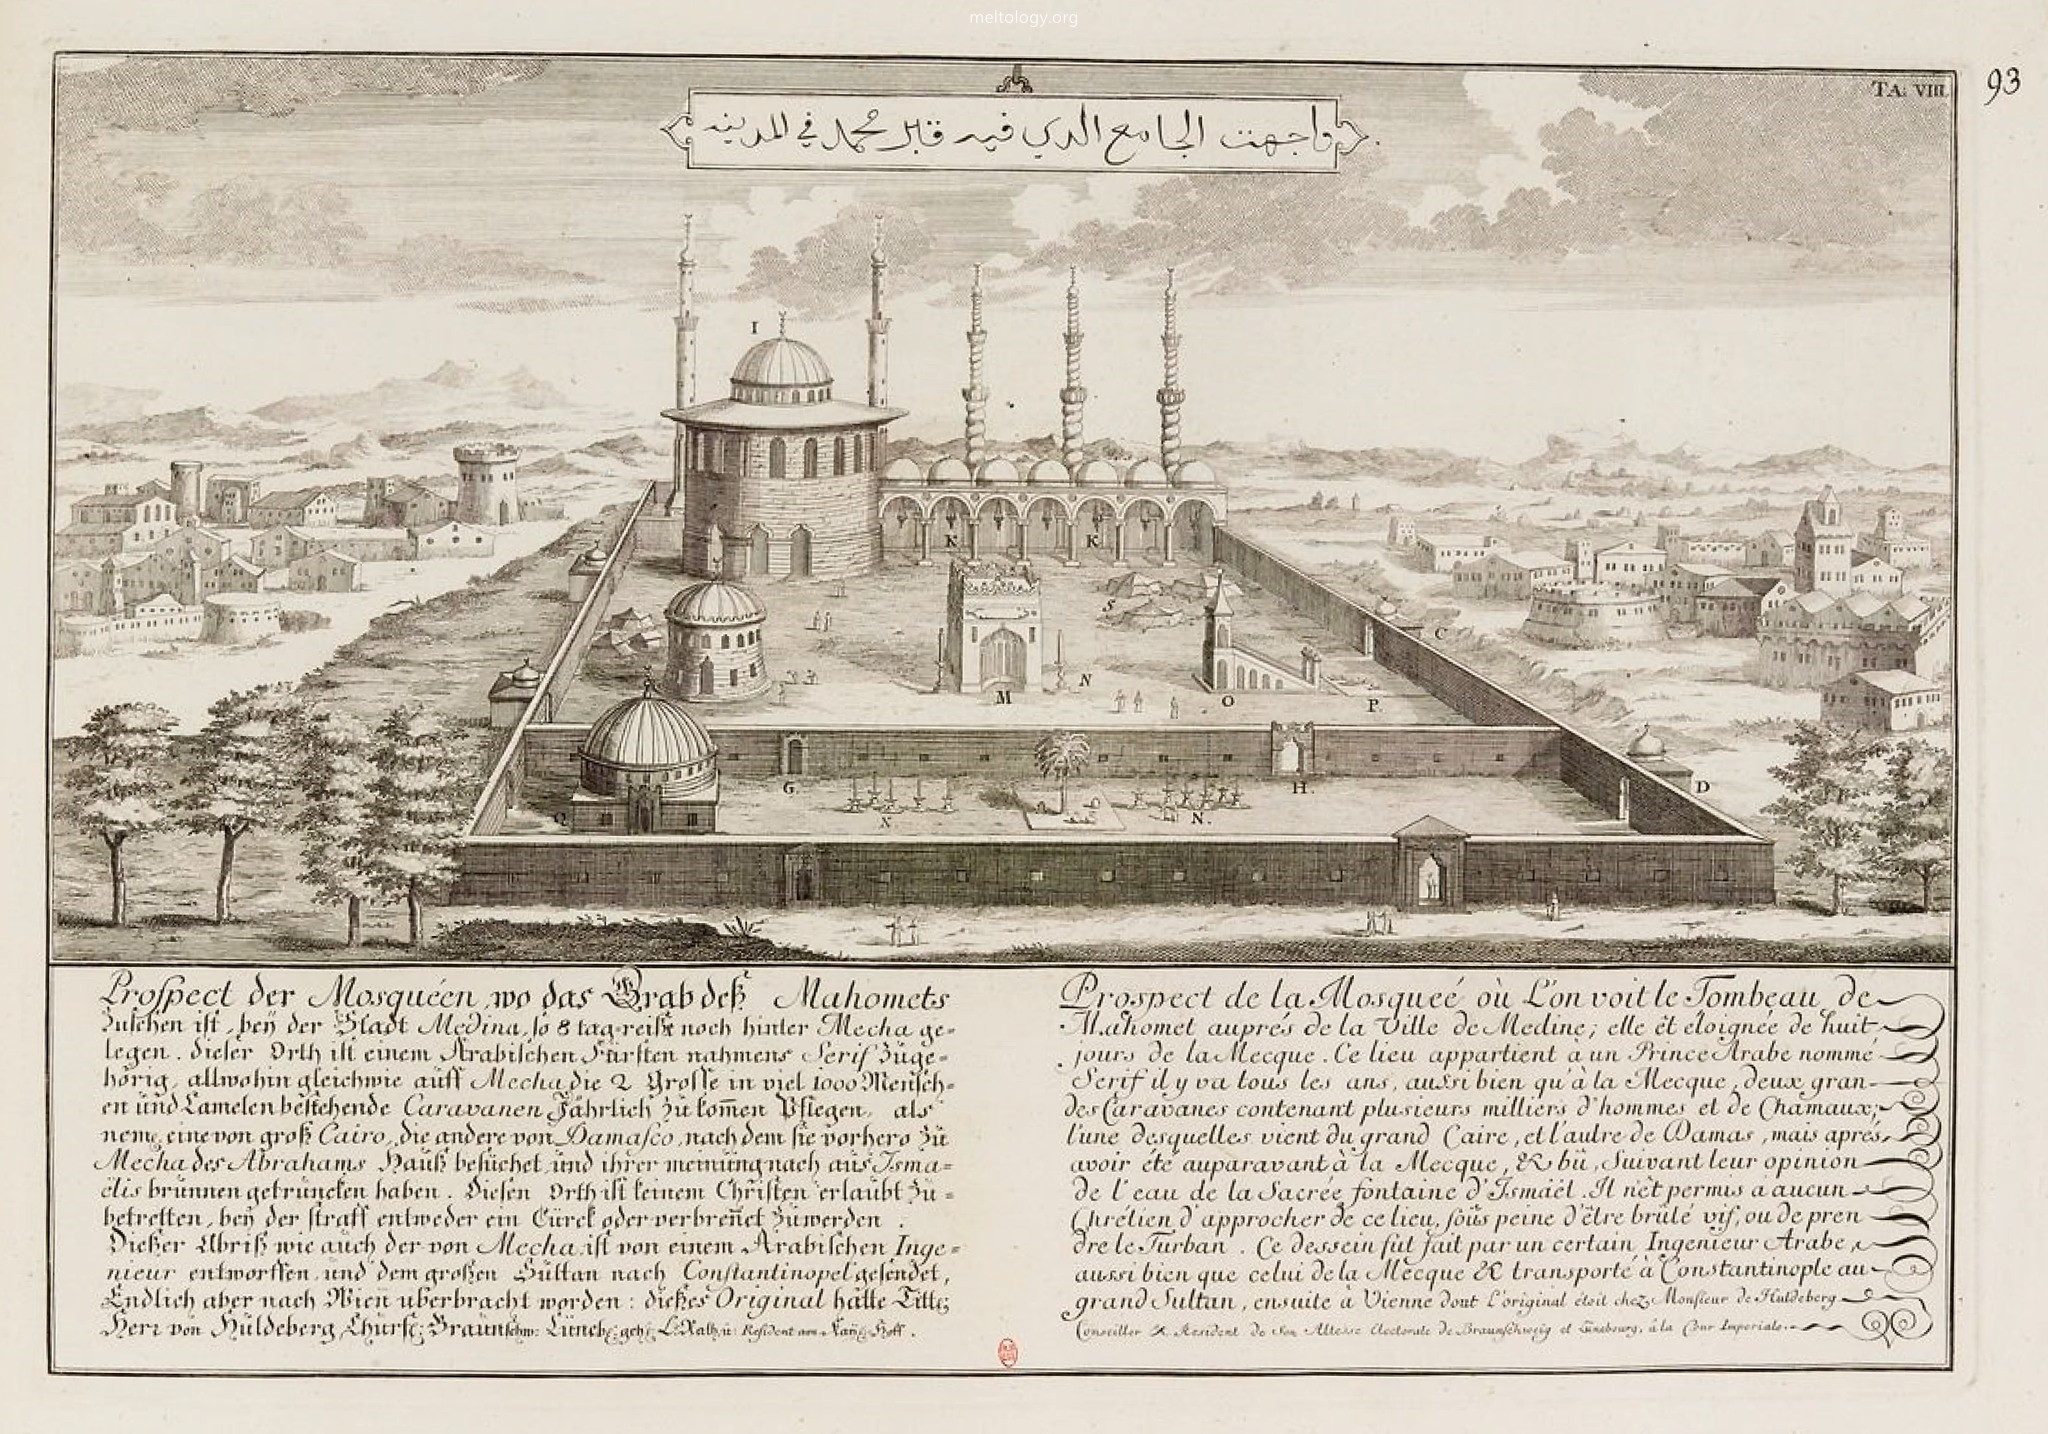 meltology.org
93
TA: VIII.
واجهت الجامع الدي فيه قابر محمد في المدينه
I
K K
S
C
M N O P.
D
G. H.
Q N. N.
Prospect der Mosquéen, wo das Grab deß Mahomets
zusehen ist, beÿ der Stadt Medina, so 8 tag-reiße noch hinter Mecha ge-
legen. dieser Orth ist einem Arabischen Fürsten nahmens Serif zuge-
hörig, allwohin gleichwie auff Mecha die 2 Grosse in viel 1000 Mensch-
en und Camelen bestehende Caravanen Jährlich zu kom̄en Pflegen, als
neml. eine von groß Cairo, die andere von Damasco, nach dem sie vorhero zu
Mecha des Abrahams Hauß besuchet, und ihrer meinung nach aus Isma-
elis brunnen getruncken haben. Diesen Orth ist keinem Christen erlaubt zu-
betretten, beÿ der straff entweder ein Türck oder verbren̄et zuwerden.
Dießer Abriß wie auch der von Mecha ist von einem Arabischen Inge-
nieur entworffen, und dem großen Sultan nach Constantinopel gesendet,
Endlich aber nach Wien uberbracht worden: dießes Original hatte Titl:
Herr von Huldeberg Churf: Braunschw: Lüneb: geh: L: Rath, u: Resident am Kaÿ: Hoff.
Prospect de la Mosqueé où L'on voit le Tombeau de
Mahomet auprés de la Ville de Medine; elle êt eloignée de huit
jours de la Mecque. Ce lieu appartient à un Prince Arabe nommé
Serif il y va tous les ans, aussi bien qu'à la Mecque, deux gran-
des Caravanes contenant plusieurs milliers d'hommes et de Chamaux;
l'une desquelles vient du grand Caire, et l'autre de Damas, mais aprés,
avoir été auparavant à la Mecque, & bû, Suivant leur opinion
de l'eau de la Sacrée fontaine d'Ismäel. Il n'êt permis a aucun
Chrétien d'approcher de ce lieu, soûs peine d'être brûlé vif, ou de pren
dre le Turban. Ce dessein fut fait par un certain Ingenieur Arabe,
aussi bien que celui de la Mecque & transporté à Constantinople au
grand Sultan, ensuite à Vienne dont L'original étoit chez Monsieur de Huldeberg
Conseiller & Resident de Son Altesse Electorale de Braunschweig et Lünebourg, à la Cour Imperiale.